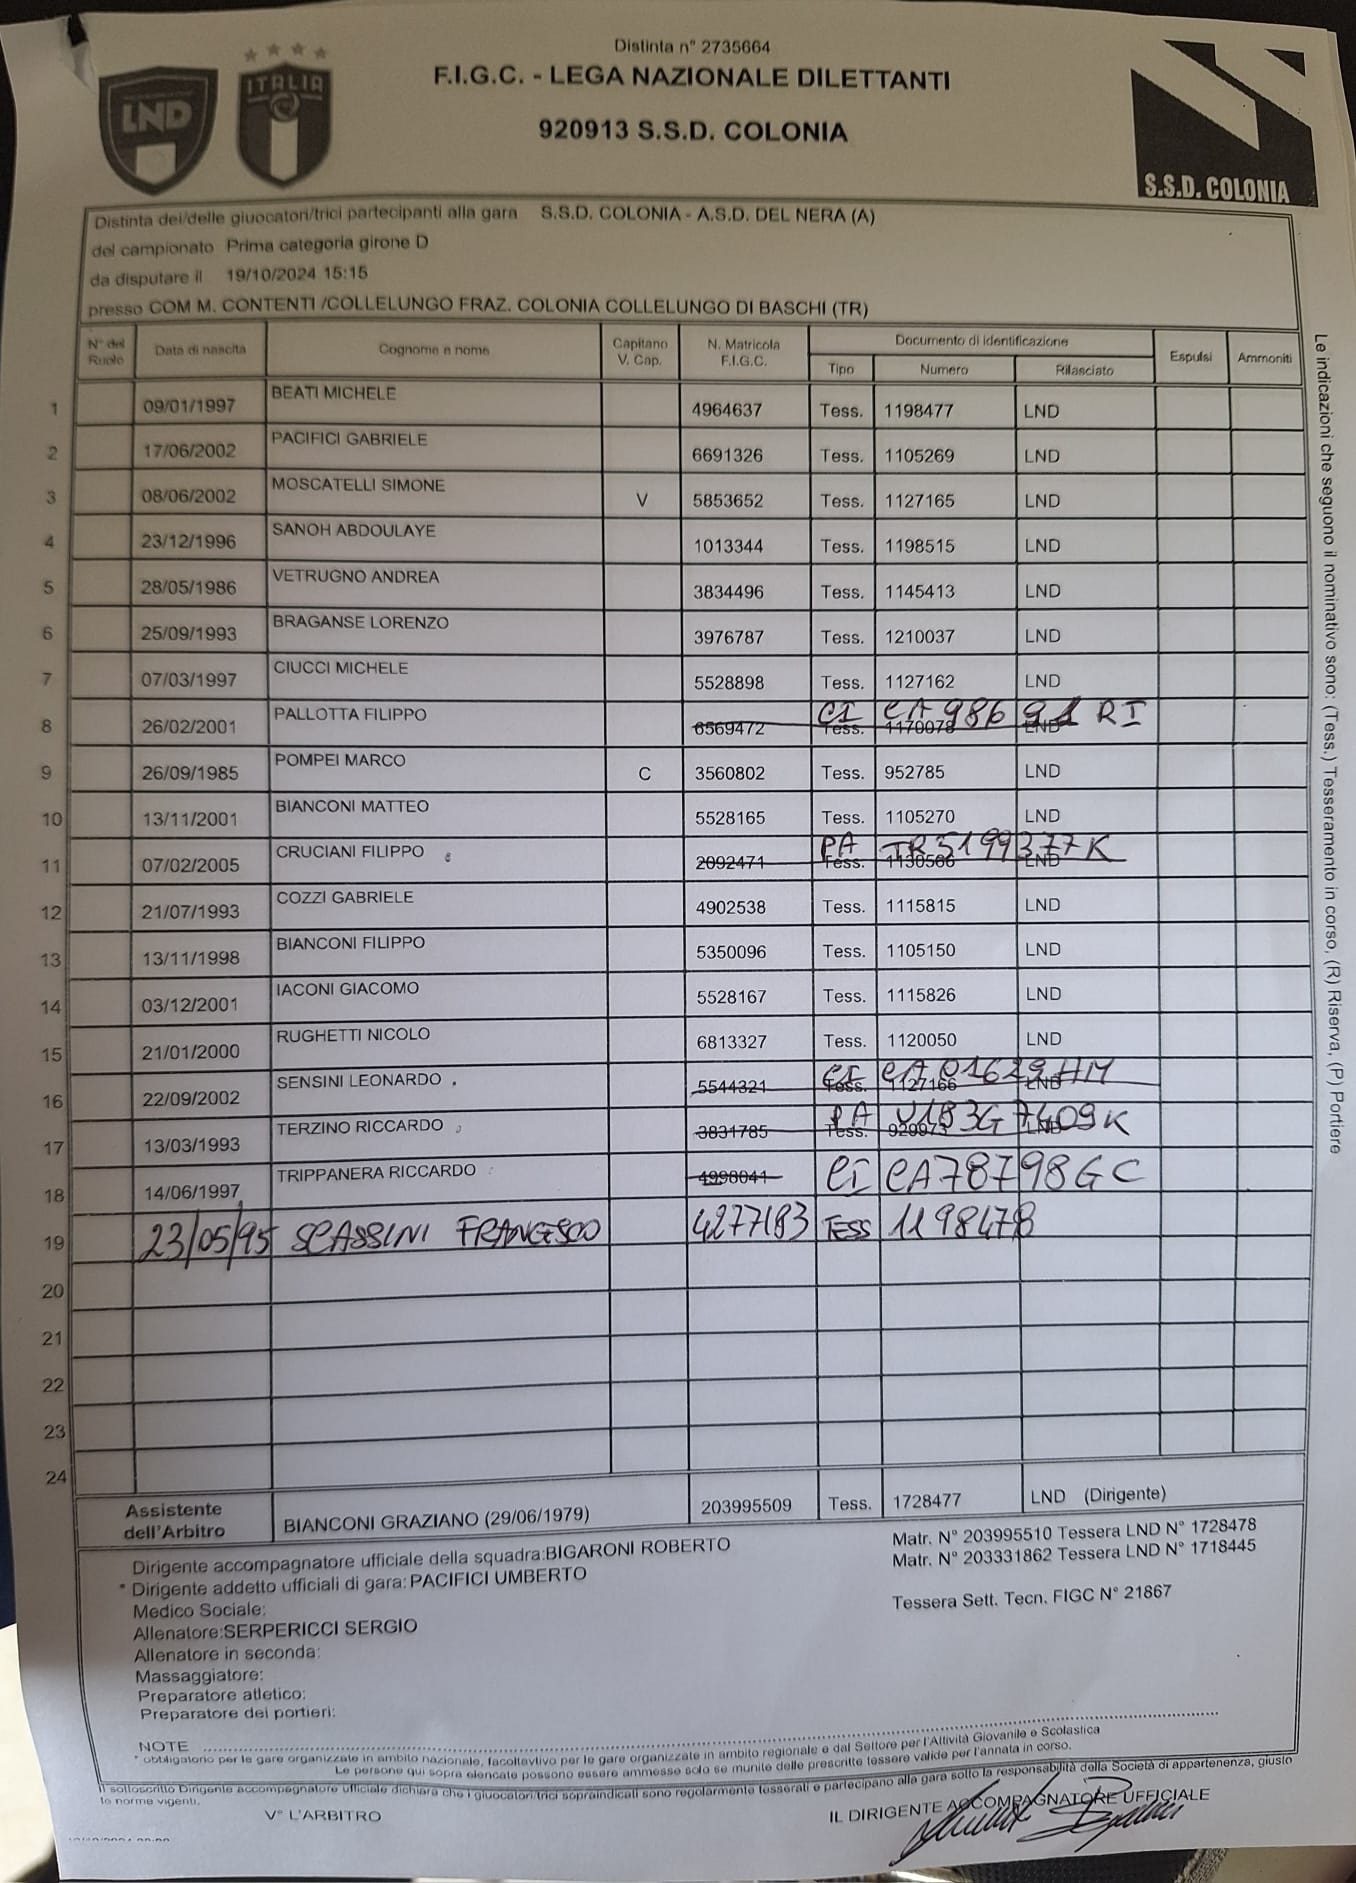 Distinta n° 2735664
F.I.G.C. - LEGA NAZIONALE DILETTANTI
920913 S.S.D. COLONIA
LND
ITALIA
S.S.D. COLONIA
Distinta dei/delle giuocatori/trici partecipanti alla gara S.S.D. COLONIA - A.S.D. DEL NERA (A)
del campionato Prima categoria girone D
da disputare il 19/10/2024 15:15
presso COM M. CONTENTI /COLLELUNGO FRAZ. COLONIA COLLELUNGO DI BASCHI (TR)
N° del Ruolo Data di nascita Cognome e nome Capitano V. Cap. N. Matricola F.I.G.C. Documento di identificazione Espulsi Ammoniti
Tipo Numero Rilasciato
1 09/01/1997 BEATI MICHELE 4964637 Tess. 1198477 LND
2 17/06/2002 PACIFICI GABRIELE 6691326 Tess. 1105269 LND
3 08/06/2002 MOSCATELLI SIMONE V 5853652 Tess. 1127165 LND
4 23/12/1996 SANOH ABDOULAYE 1013344 Tess. 1198515 LND
5 28/05/1986 VETRUGNO ANDREA 3834496 Tess. 1145413 LND
6 25/09/1993 BRAGANSE LORENZO 3976787 Tess. 1210037 LND
7 07/03/1997 CIUCCI MICHELE 5528898 Tess. 1127162 LND
8 26/02/2001 PALLOTTA FILIPPO 6569472 Tess. LND CI RI
9 26/09/1985 POMPEI MARCO C 3560802 Tess. 952785 LND
10 13/11/2001 BIANCONI MATTEO 5528165 Tess. 1105270 LND
11 07/02/2005 CRUCIANI FILIPPO 2092471 Tess. LND PA TR5199377K
12 21/07/1993 COZZI GABRIELE 4902538 Tess. 1115815 LND
13 13/11/1998 BIANCONI FILIPPO 5350096 Tess. 1105150 LND
14 03/12/2001 IACONI GIACOMO 5528167 Tess. 1115826 LND
15 21/01/2000 RUGHETTI NICOLO 6813327 Tess. 1120050 LND
16 22/09/2002 SENSINI LEONARDO 5544321 Tess. 1127166 LND CI CA01629HM
17 13/03/1993 TERZINO RICCARDO 3831785 Tess. LND PA U183G7409K
18 14/06/1997 TRIPPANERA RICCARDO 4998041 CI CA78798GC
19 23/05/95 SCASSINI FRANCESCO 4277183 TESS 1198478
20
21
22
23
24
Assistente dell'Arbitro BIANCONI GRAZIANO (29/06/1979) 203995509 Tess. 1728477 LND (Dirigente)
Dirigente accompagnatore ufficiale della squadra:BIGARONI ROBERTO Matr. N° 203995510 Tessera LND N° 1728478
* Dirigente addetto ufficiali di gara: PACIFICI UMBERTO Matr. N° 203331862 Tessera LND N° 1718445
Medico Sociale:
Allenatore:SERPERICCI SERGIO Tessera Sett. Tecn. FIGC N° 21867
Allenatore in seconda:
Massaggiatore:
Preparatore atletico:
Preparatore dei portieri:
NOTE
* obbligatorio per le gare organizzate in ambito nazionale, facoltavtivo per le gare organizzate in ambito regionale e dal Settore per l'Attività Giovanile e Scolastica
Le persone qui sopra elencate possono essere ammesse solo se munite delle prescritte tessere valide per l'annata in corso.
Il sottoscritto Dirigente accompagnatore ufficiale dichiara che i giuocatori/trici sopraindicati sono regolarmente tesserati e partecipano alla gara sotto la responsabilità della Società di appartenenza, giusto
le norme vigenti.
V° L'ARBITRO IL DIRIGENTE ACCOMPAGNATORE UFFICIALE
Le indicazioni che seguono il nominativo sono: (Tess.) Tesseramento in corso, (R) Riserva, (P) Portiere